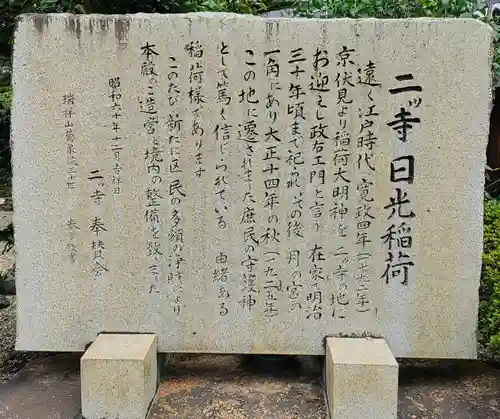 二ッ寺 日光稲荷
遠く江戸時代 寛政四年(一七九二年)
京伏見より稲荷大明神を二ッ寺の地に
お迎えし政右エ門と言う 在家で明治
三十年頃まで祀られ、その後 月の宮の
一角にあり大正十四年の秋(一九二五年)
この地に遷されました庶民の守護神
として篤く信じられている 由緒ある
稲荷様であります
このたび新たに区民の多額の浄財により
本殿のご造営と境内の整備を致しました
昭和六十年十二月吉祥日
二ッ寺 奉賛会
瑞祥山菊泉二十世